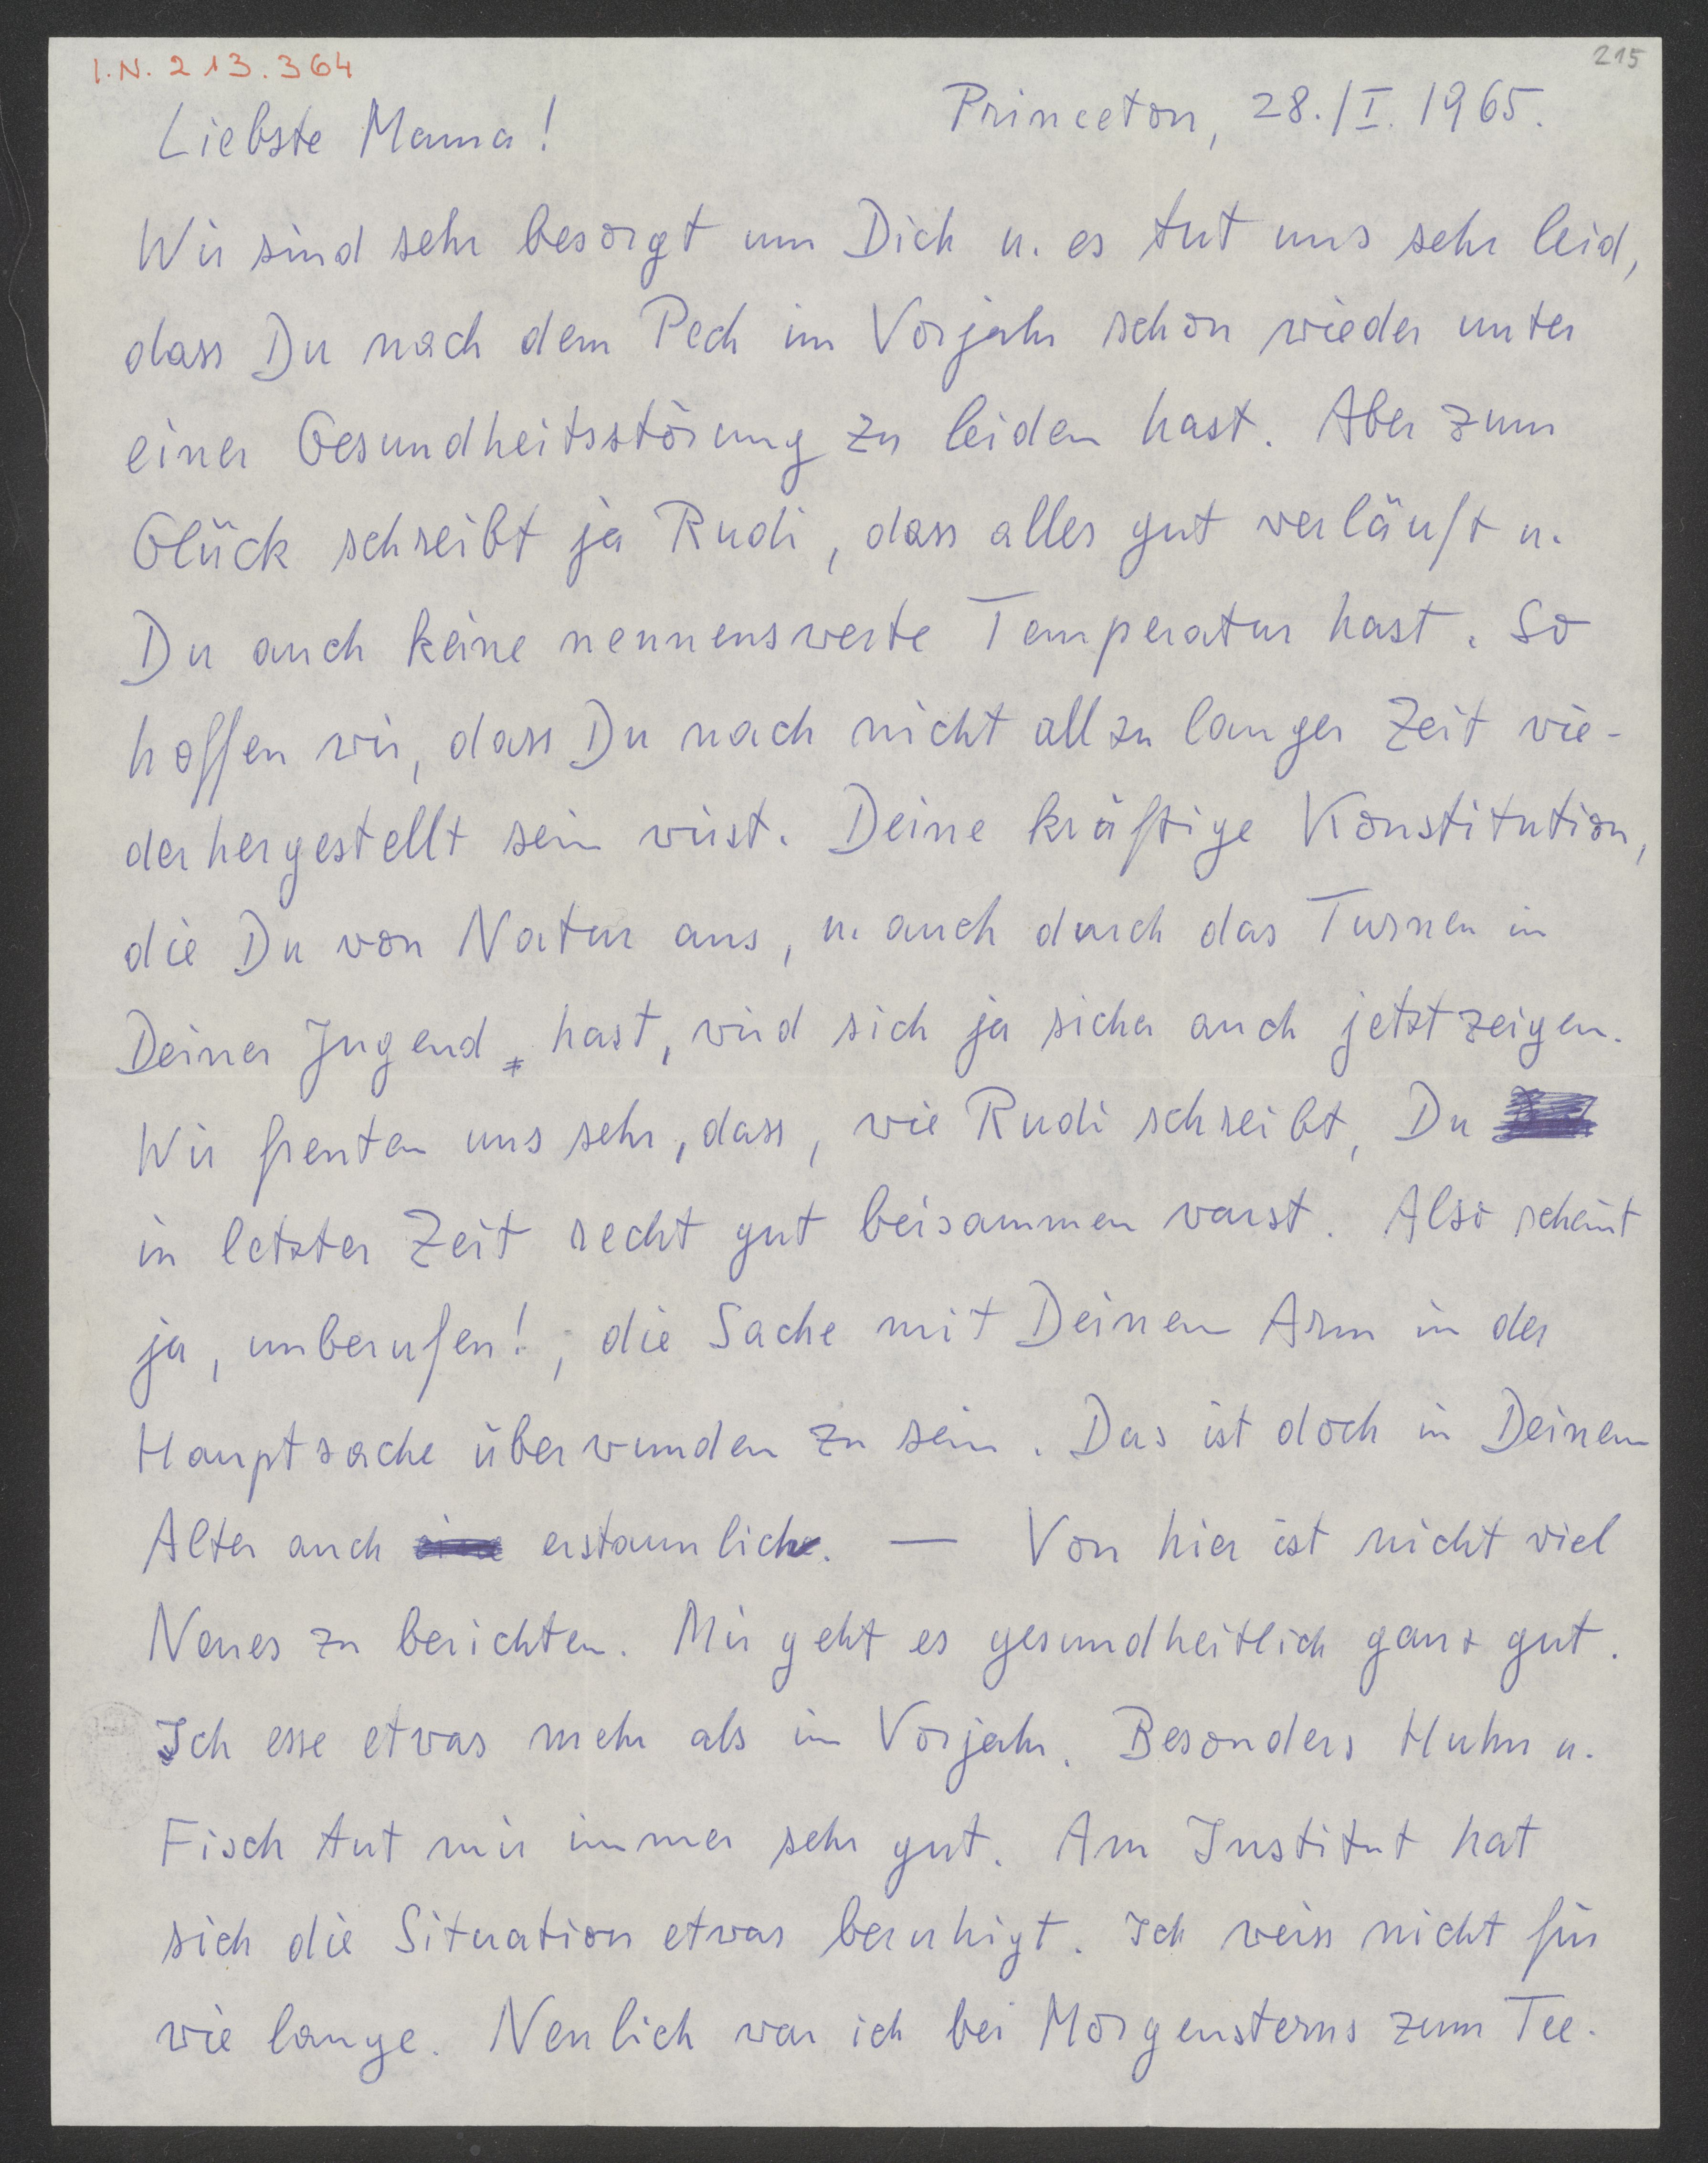 I.N. 213.364
215
Princeton, 28./I. 1965.
Liebste Mama!
Wir sind sehr besorgt um Dich u. es tut uns sehr leid,
dass Du nach dem Pech im Vorjahr schon wieder unter
einer Gesundheitsstörung zu leiden hast. Aber zum
Glück schreibt ja Rudi, dass alles gut verläuft u.
Du auch keine nennenswerte Temperatur hast. So
hoffen wir, dass Du nach nicht allzu langer Zeit wie-
derhergestellt sein wirst. Deine kräftige Konstitution,
die Du von Natur aus, u. auch durch das Turnen in
Deiner Jugend, hast, wird sich ja sicher auch jetzt zeigen.
Wir freuten uns sehr, dass, wie Rudi schreibt, Du
in letzter Zeit recht gut beisammen warst. Also scheint
ja, unberufen!, die Sache mit Deinem Arm in der
Hauptsache überwunden zu sein. Das ist doch in Deinem
Alter auch erstaunlich. — Von hier ist nicht viel
Neues zu berichten. Mir geht es gesundheitlich ganz gut.
Ich esse etwas mehr als im Vorjahr. Besonders Huhn u.
Fisch tut mir immer sehr gut. Am Institut hat
sich die Situation etwas beruhigt. Ich weiss nicht für
wie lange. Neulich war ich bei Morgensterns zum Tee.